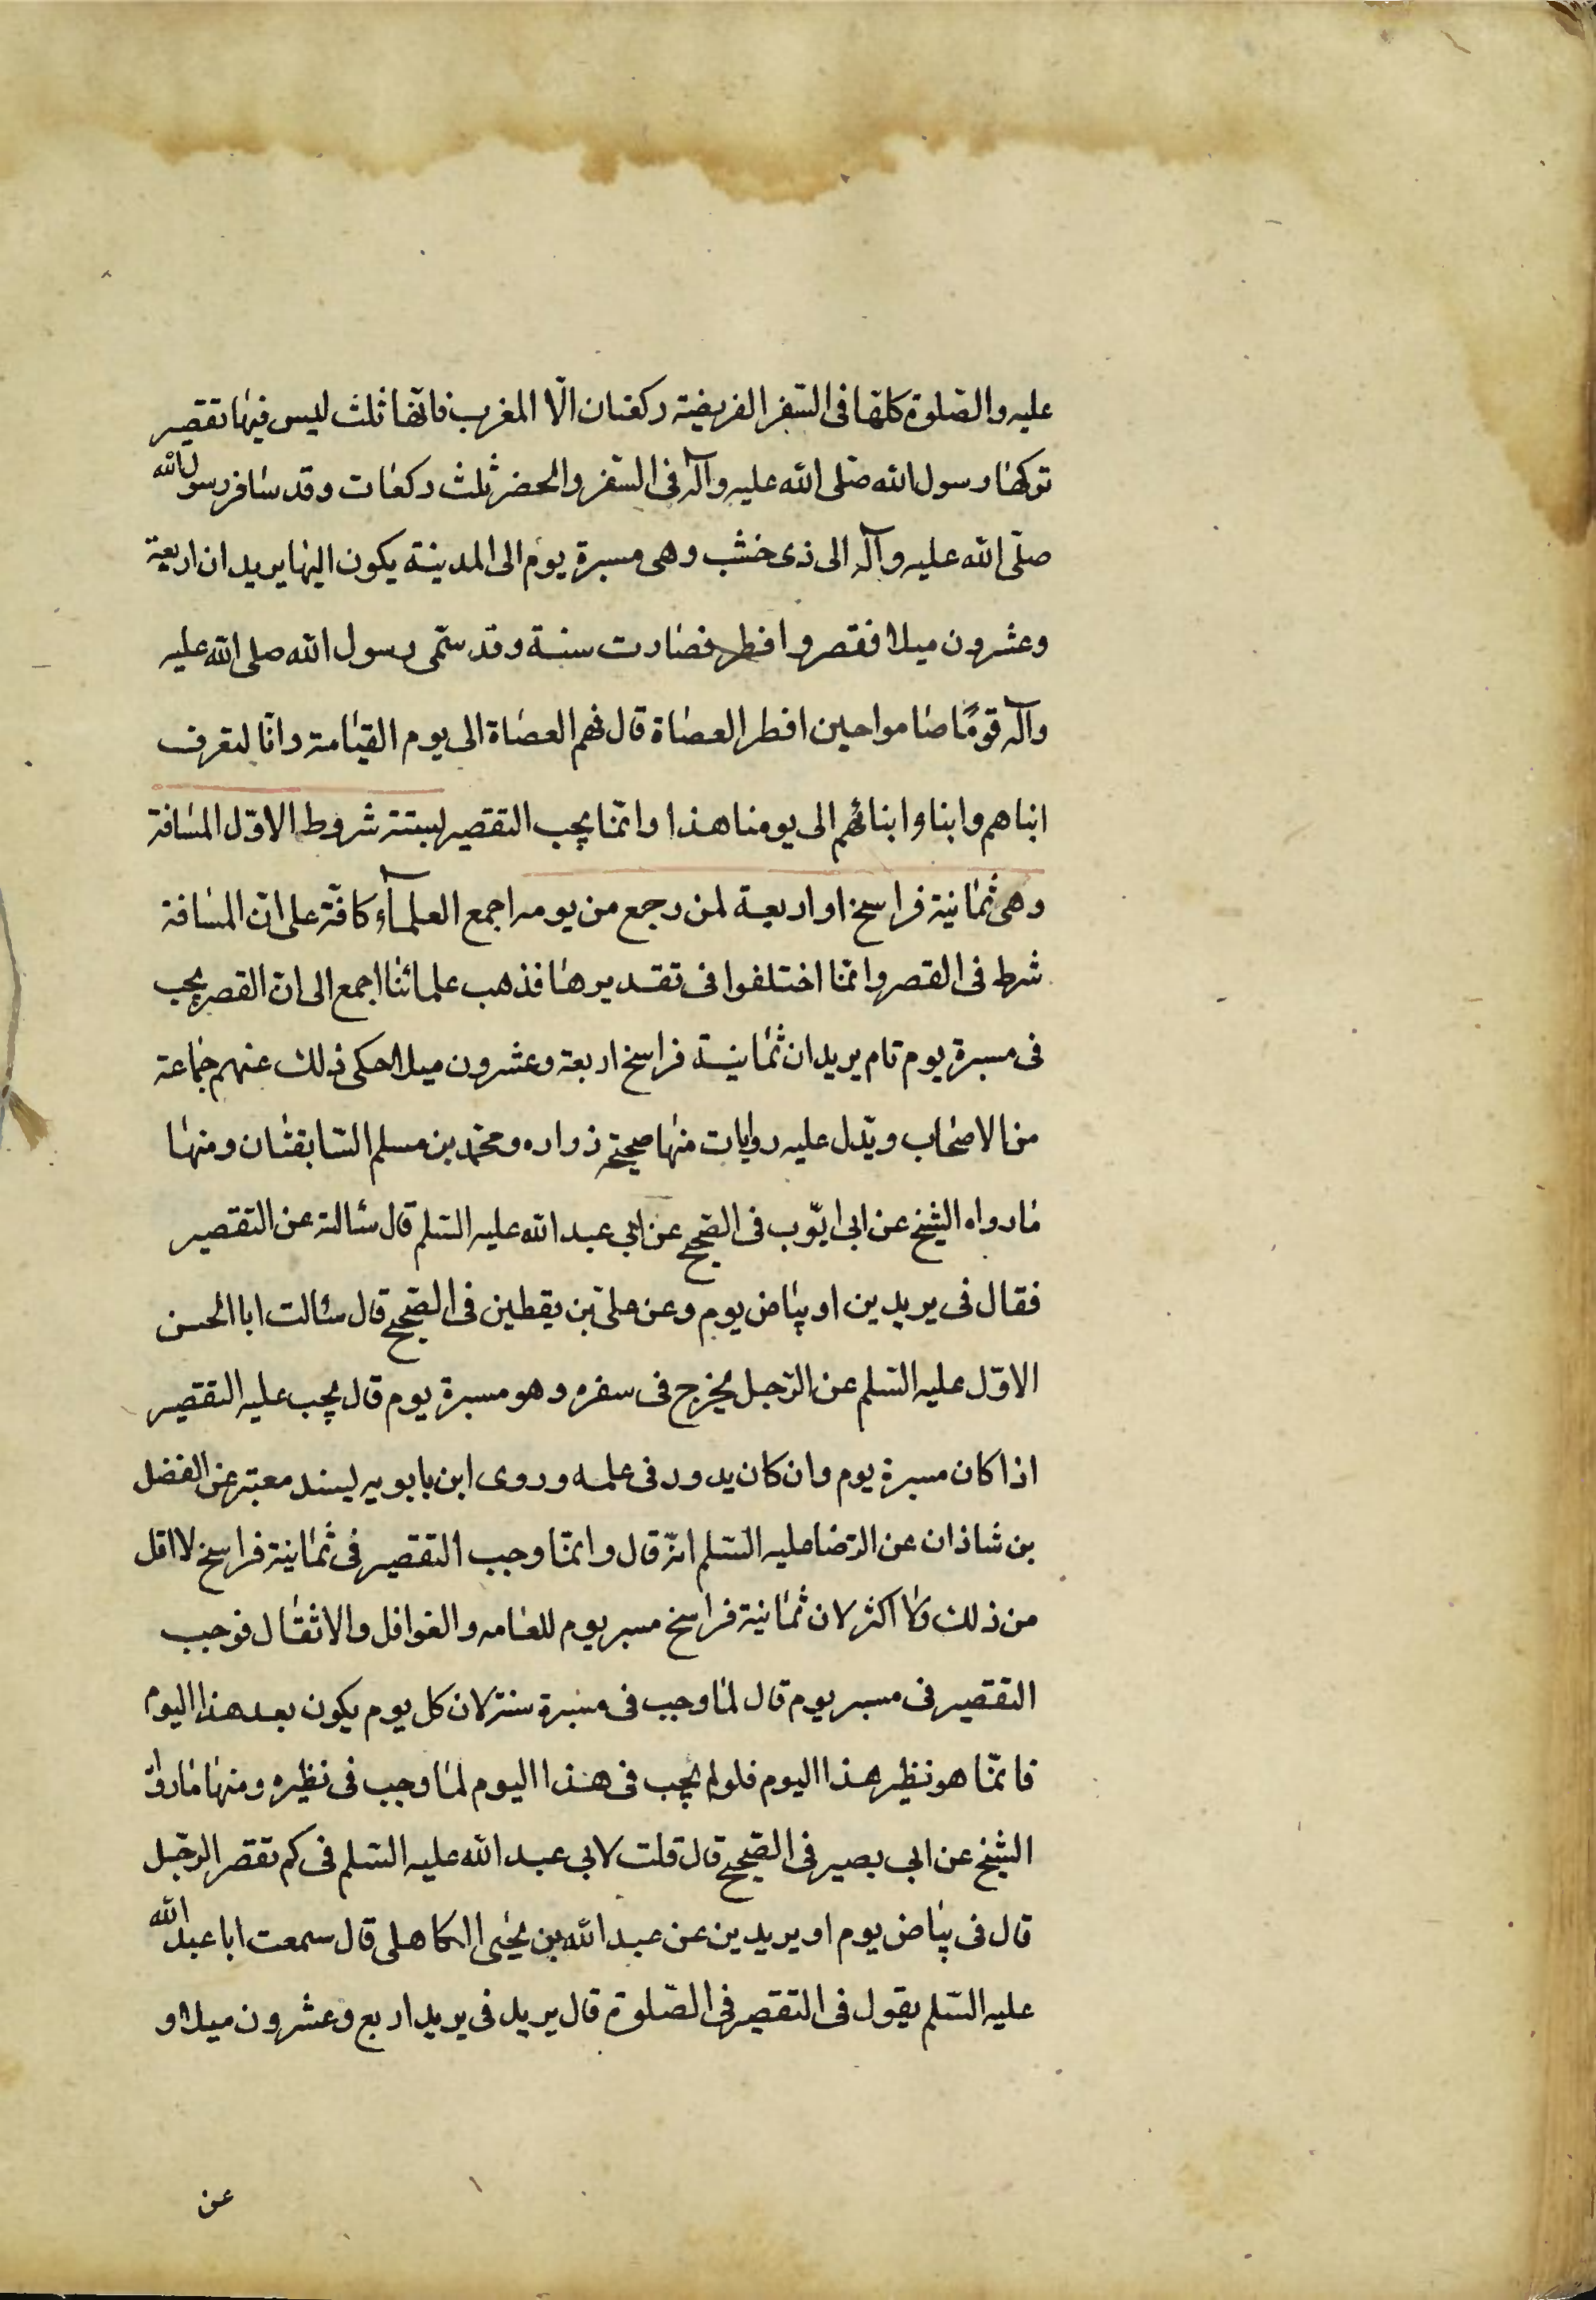 عليه والصّلوة كلّها فى السّفر الفريضة ركعتان الّا المغرب فانّها ثلث ليس فيها تقصير
تركها رسول الله صّلى الله عليه وآله فى السّفر والحضر ثلث ركعات وقد سافر رسول الله
صلّى الله عليه وآله الى ذى خشب وهى مسيرة يوم الى المدينة يكون اليها بريدان اربعة
وعشرون ميلا فقصر وافطر فصارت سنة وقد سّمى رسول الله صلى الله عليه
وآله قومًا صاموا حين افطر العصاة قال فهم العصاة الى يوم القيامة وانّا لنعرف
ابناهم وابنا وابنائهم الى يومنا هذا وانّما يجب التقصير بستة شروط الاوّل المسافة
وهى ثمانية فراسخ او اربعة لمن رجع من يومه اجمع العلمآء كافّة على انّ المسافة
شرط فى القصر وانّما اختلفوا فى تقديرها فذهب علمائنا اجمع الى ان القصر يجب
فى مسيرة يوم تام بريدان ثمانية فراسخ اربعة وعشرون ميلا حكى ذلك عنهم جماعة
من الاصحاب ويّدل عليه روايات منها صحيحة زراره ومحمّد بن مسلم السّابقتان ومنها
ما رواه الشيخ عن ابى ايّوب فى الصّحيح عن ابي عبد الله عليه السّلم قال سئالته عن التقصير
فقال فى بريدين او بياض يوم وعن علىّ بن يقطين فى الصّحيح قال سئالت ابا الحسن
الاوّل عليه السّلم عن الرّجل يخرج فى سفره وهو مسيرة يوم قال يجب عليه التقصير
اذا كان مسيرة يوم وان كان يدور فى علمه وروى ابن بابويه بسند معتبر عن الفضل
بن شاذان عن الرّضا عليه السّلم انّه قال وانمّا وجب التقصير فى ثمانية فراسخ لا اقل
من ذلك ولا اكثر لان ثمانية فراسخ مسير يوم للعامه والقوافل والاثقال فوجب
التقصير فى مسير يوم قال لما وجب فى مسيرة سنة لان كل يوم يكون بعد هذا اليوم
فانمّا هو نظير هذا اليوم فلو لم يجب فى هذا اليوم لما وجب فى نظيره ومنها ما رواه
الشيخ عن ابي بصير فى الصّحيح قال قلت لابي عبد الله عليه السّلم فى كم تقصر الرّجل
قال فى بياض يوم او بريدين عن عبد الله بن يحيى الكاهلى قال سمعت ابا عبد الله
عليه السّلم يقول فى التقصير فى الصّلوة قال بريد فى بريد اربع وعشرون ميلا و
عن